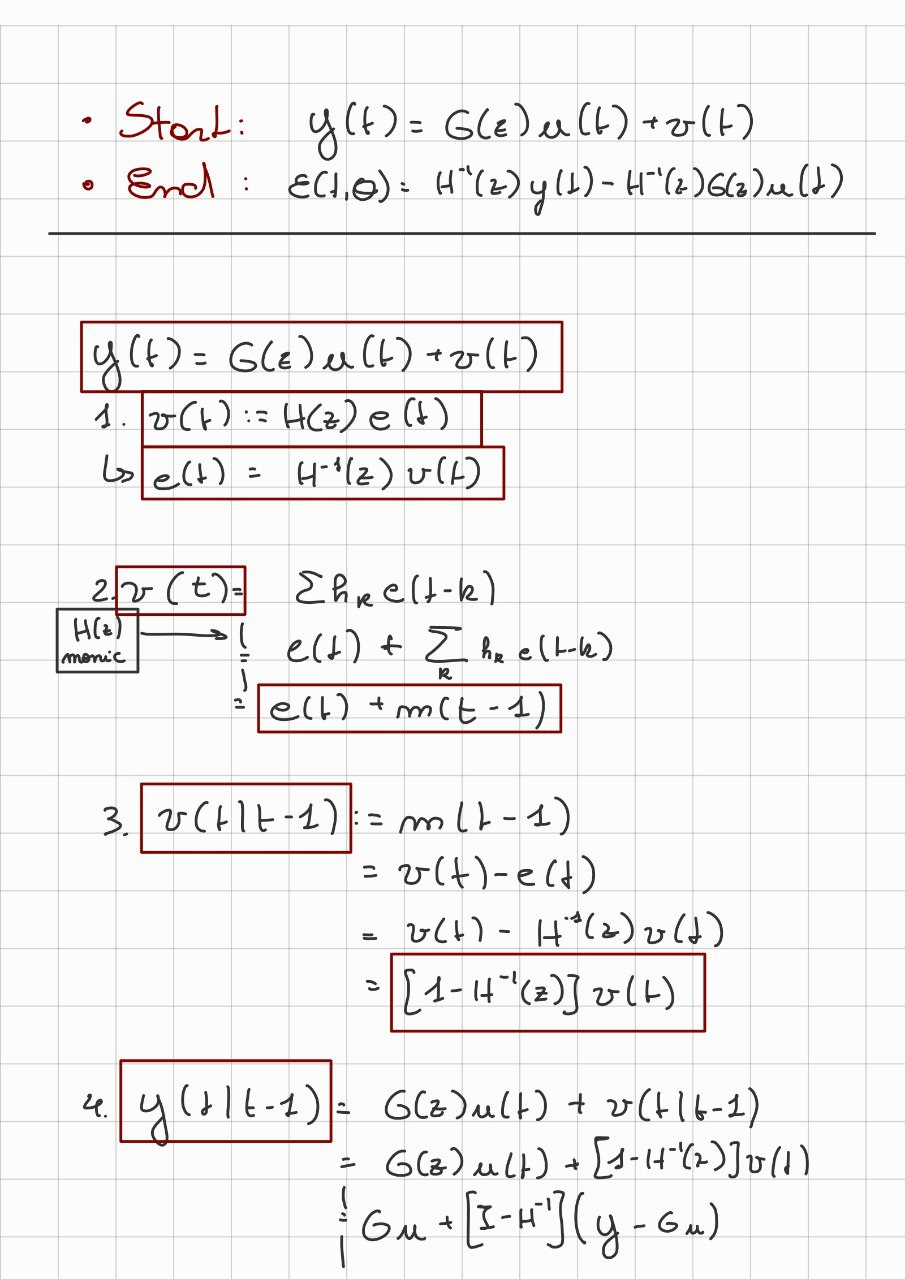 • Start: y(t) = G(z) u(t) + v(t)
• End: ε(t,θ) = H⁻¹(z) y(t) - H⁻¹(z) G(z) u(t)
y(t) = G(z) u(t) + v(t)
1. v(t) := H(z) e(t)
↳ e(t) = H⁻¹(z) v(t)
2. v(t) = Σ hₖ e(t-k)
H(z) monic → = e(t) + Σₖ hₖ e(t-k)
= e(t) + m(t-1)
3. v(t|t-1) := m(t-1)
= v(t) - e(t)
= v(t) - H⁻¹(z) v(t)
= [1-H⁻¹(z)] v(t)
4. y(t|t-1) = G(z) u(t) + v(t|t-1)
= G(z) u(t) + [1-H⁻¹(z)] v(t)
= Gu + [I-H⁻¹](y - Gu)